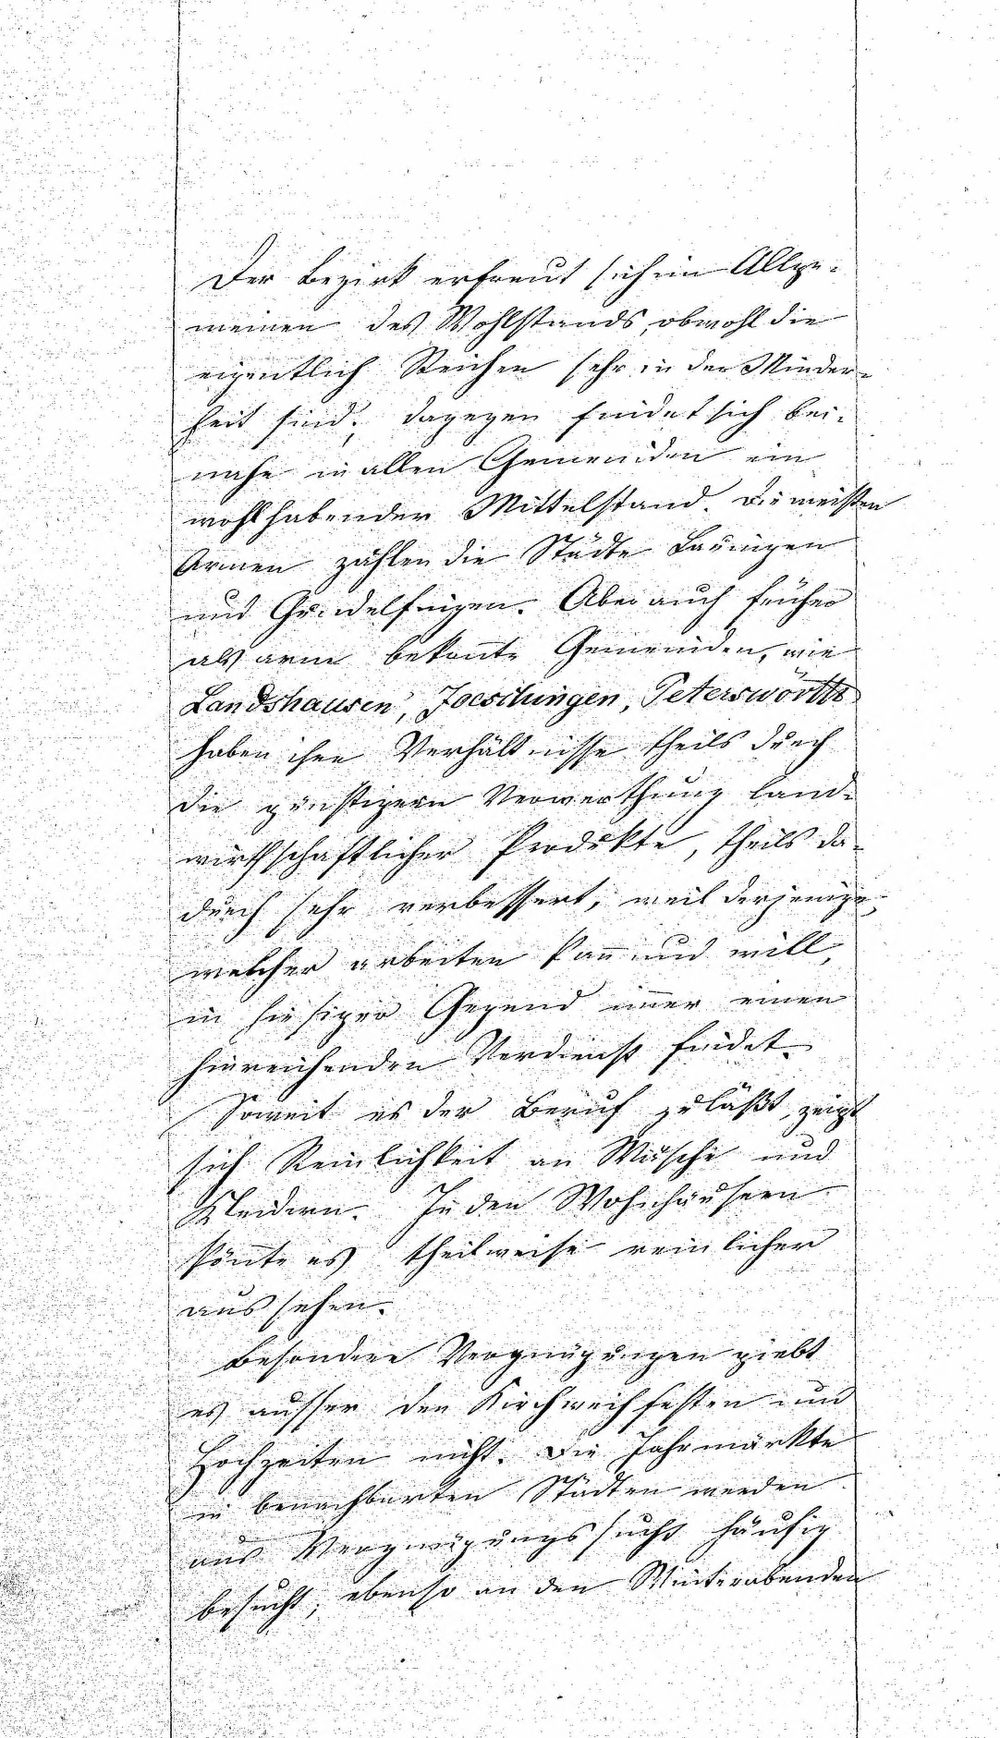 Der Bezirk erfreut sich im Allge-
meinen des Wohlstands, obwohl die
eigentlich Reichen sehr in der Minder-
heit sind; dagegen findet sich bei-
nahe in allen Gemeinden ein
wohlhabender Mittelstand. Die meisten
Armen zählen die Städte Lauingen
und Gundelfingen. Aber auch früher
als arm bekan̄te Gemeinden, wie
Landshausen, Peterswörth
haben ihre Verhältnisse theils durch
die günstigern Verwerthung land-
wirthschaftlicher Produkte, theils da-
durch sehr verbessert, weil derjenige,
welcher arbeiten kan̄ und will,
in hiesiger Gegend im̄er einen
hinreichenden Verdienst findet.
Soweit es der Beruf zuläßt, zeigt
sich Reinlichkeit an Wäsche und
Kleidern. In den Wohnhäusern
kön̄te es theilweise reinlicher
aussehen.
Besondere Vergnügungen giebt
es ausser den Kirchweihfesten und
Hochzeiten nicht. Die Jahrmärkte
in benachbarten Städten werden
aus Vergnügungssucht häufig
besucht; ebenso an den Winterabenden